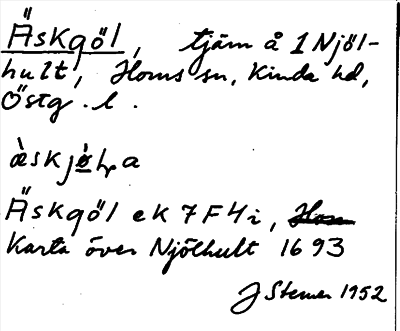 Äskgöl, tjärn å 1 Njöl-
hult, Horns sn, Kinda hd,
Östg. l.
Äskgöl ek 7F4i,
Karta över Njölhult 1693
J Stemer 1952